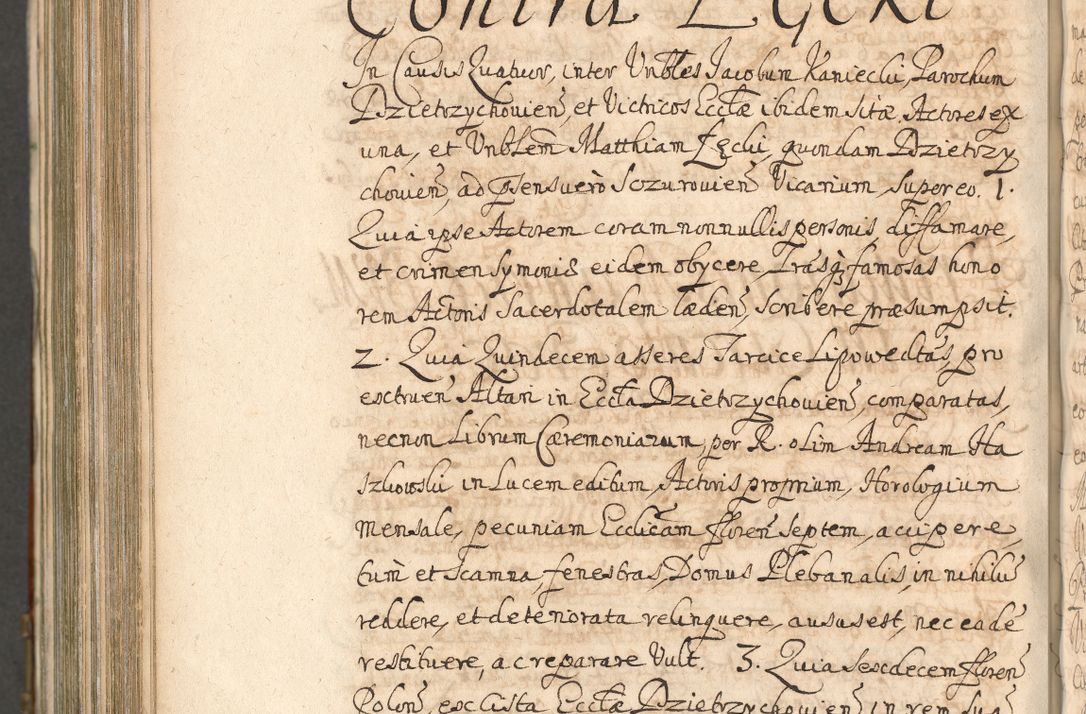 Contra Łęcki
In Causis Quatuor, inter Vnbles Jacobum Kaniecki, Parochum
Dzietrzychouien̄, et Victricos Eccłæ ibidem sitæ. Actores ex
una, et Vnblem̄ Matthiam Łęcki, quondam Dzietrzy
chouien̄, ad p̄sens uerò Sozurouien̄ Vicarium, super eo. 1.
Quia ipse Actorem coram nonnullis personis diffamare,
et crimen symoniæ eidem obycere, Lr̄asq̨ famosas hono
rem Actoris Sacerdotalem læden̄, scribere præsumpsit.
2. Quia Quindecem asseres Tarcice Lipowe dictas, pro
exctruen̄ Altari in Eccła Dzietrzychouien̄, comparatas,
necnon Librum Cæremoniarum, per R. olim Andream Ha
szkowski in Lucem editum, Actoris proprium, Horologium
mensale, pecuniam Ecclicam̄ floren̄ septem, accipere,
tum̄ et scamna, fenestras, Domus Plebanalis, in nihilū
reddere, et deteriorata relinquere, ausus est, nec eadē
restituere, ac reparare Vult. 3. Quia sexdecem floren̄
Polon̄, ex cista Eccłæ Dzietrzychouien̄ in rem suā